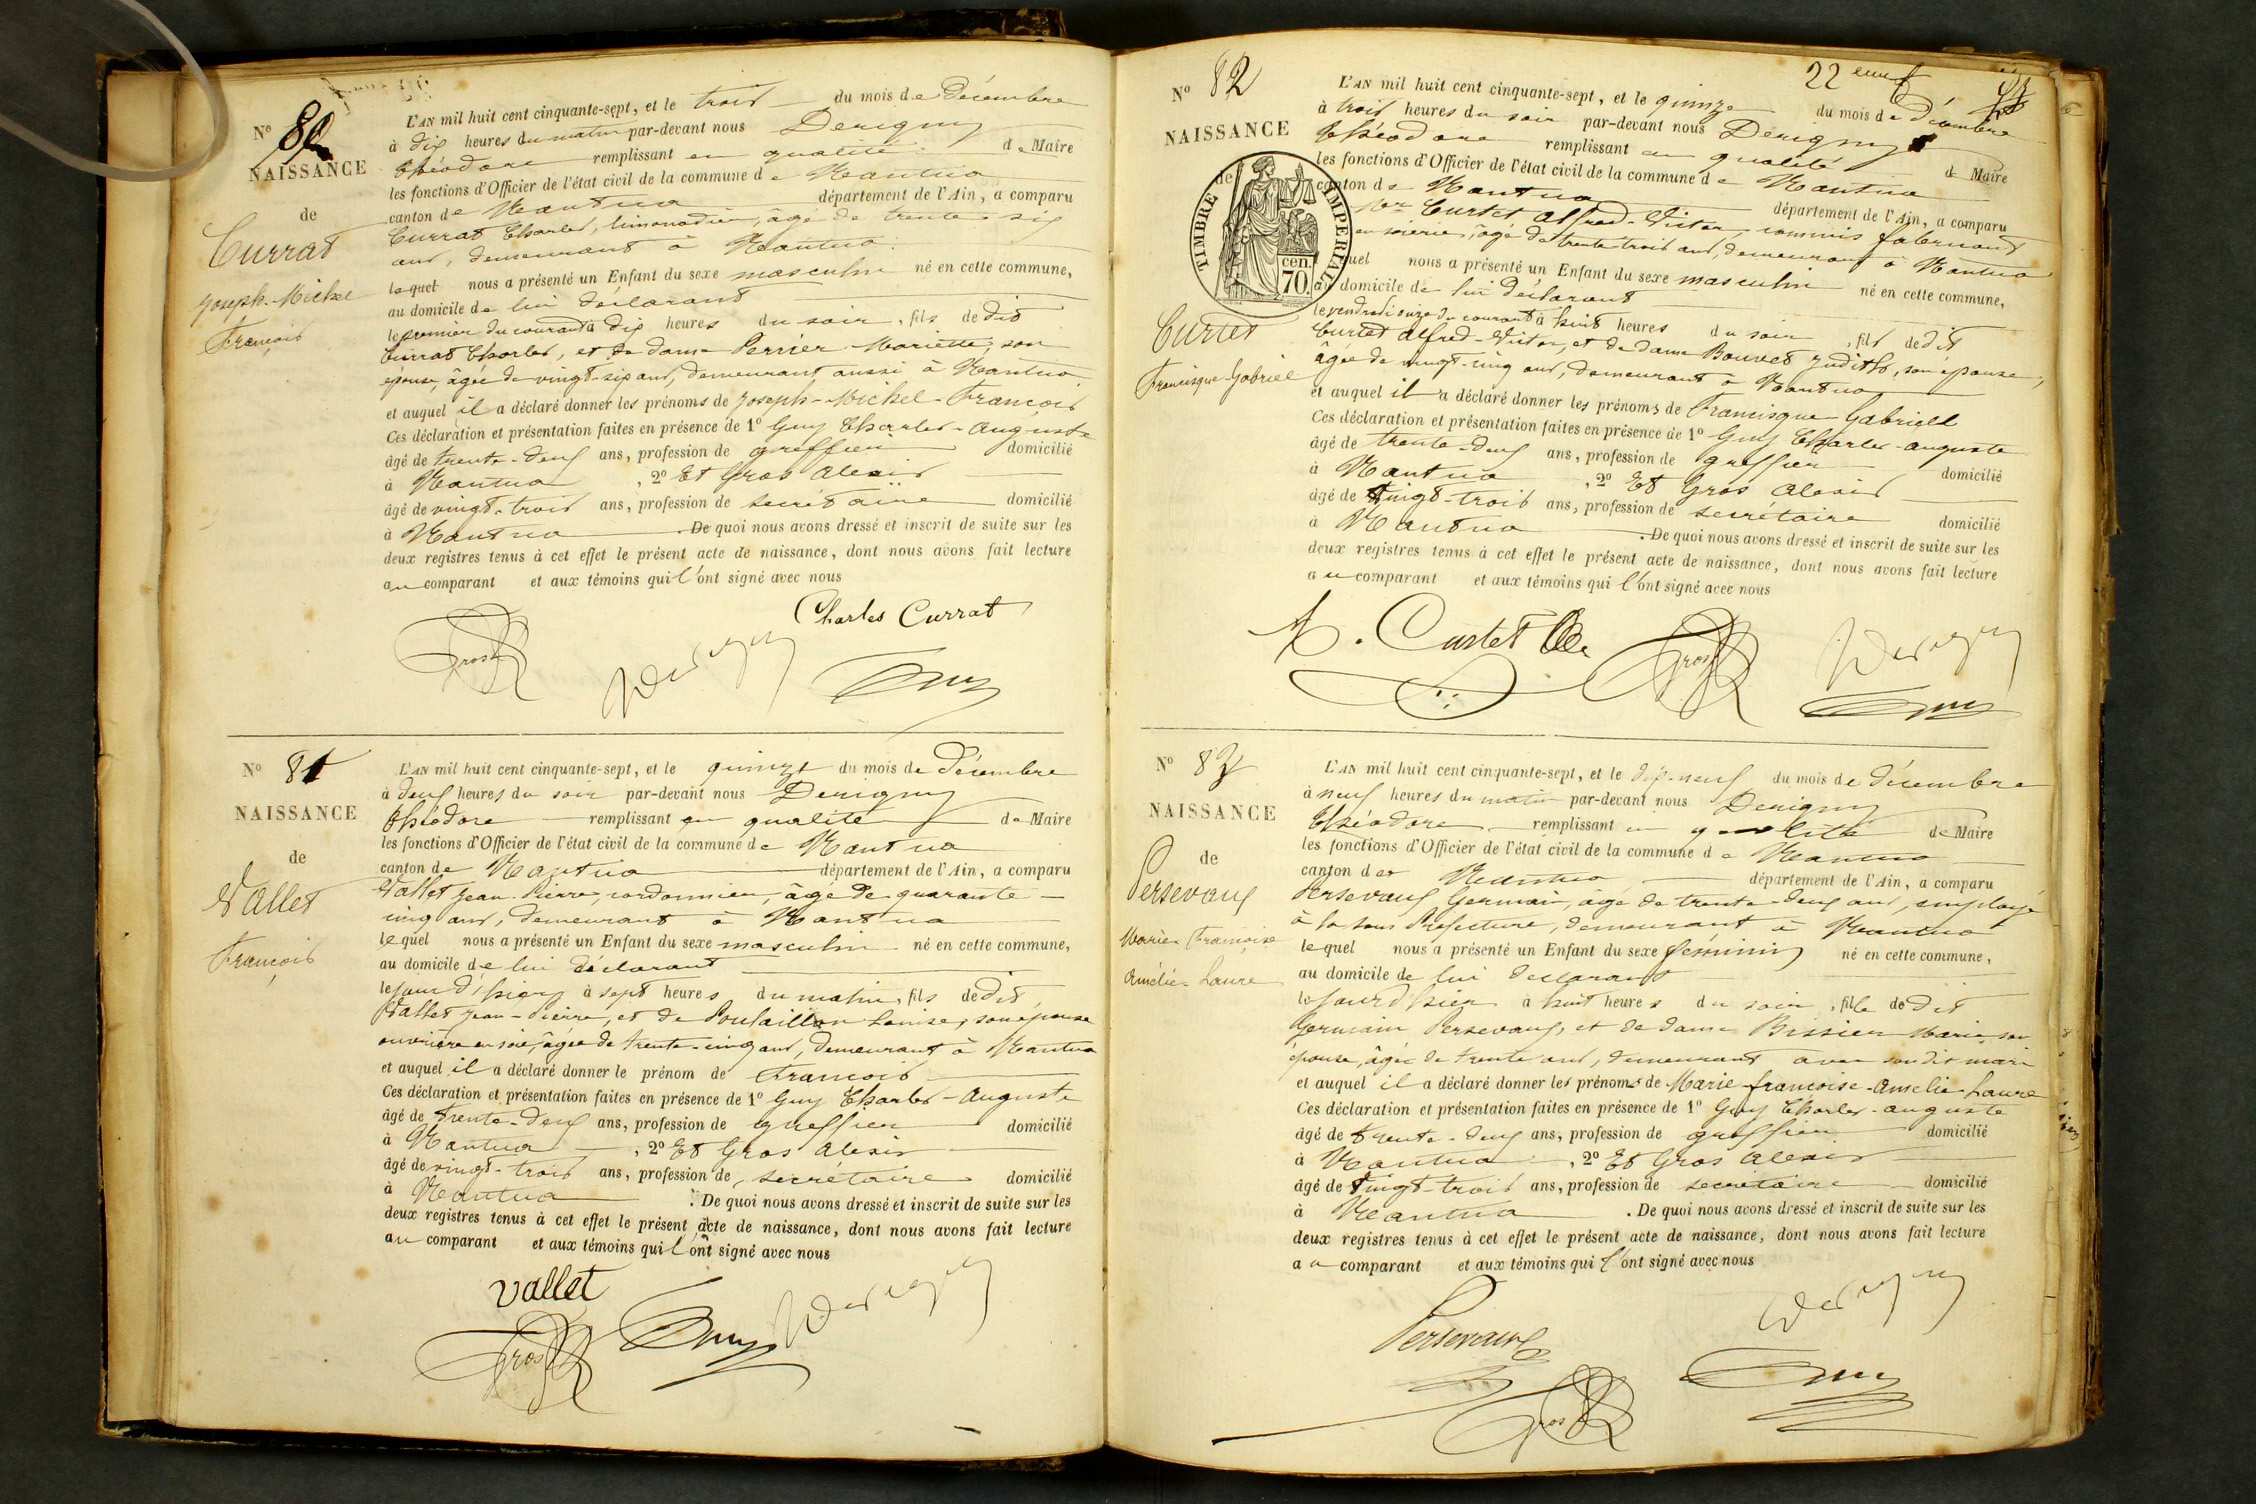 N° 80
NAISSANCE
de
Currat
Joseph-Michel
François
L'AN mil huit cent cinquante-sept, et le trois du mois de Décembre
à dix heures du matin par-devant nous Derigny
Théodore remplissant en qualité de Maire
les fonctions d'Officier de l'état civil de la commune de Nantua
canton de Nantua département de l'Ain, a comparu
Currat Charles, limonadier, âgé de trente-six
ans, demeurant à Nantua.
lequel nous a présenté un Enfant du sexe masculin né en cette commune,
au domicile de lui déclarant
le premier du courant à dix heures du soir, fils de dit
Currat Charles, et de dame Perrier Mariette, son
épouse, âgée de vingt-six ans, demeurant aussi à Nantua
et auquel il a déclaré donner les prénoms de Joseph-Michel-François
Ces déclaration et présentation faites en présence de 1° Guy Charles-Auguste
âgé de trente-deux ans, profession de greffier domicilié
à Nantua, 2° Et Gros Alexis
âgé de vingt-trois ans, profession de secrétaire domicilié
à Nantua. De quoi nous avons dressé et inscrit de suite sur les
deux registres tenus à cet effet le présent acte de naissance, dont nous avons fait lecture
au comparant et aux témoins qui l'ont signé avec nous
Charles Currat
Gros Derigny Guy
N° 81
NAISSANCE
de
Vallet
François
L'AN mil huit cent cinquante-sept, et le quinze du mois de Décembre
à deux heures du soir par-devant nous Derigny
Théodore remplissant en qualité de Maire
les fonctions d'Officier de l'état civil de la commune de Nantua
canton de Nantua département de l'Ain, a comparu
Vallet Jean-Pierre, cordonnier, âgé de quarante-
cinq ans, demeurant à Nantua
lequel nous a présenté un Enfant du sexe masculin né en cette commune,
au domicile de lui déclarant
le jour d'hier à sept heures du matin, fils de dit
Vallet Jean-Pierre, et de Poulaillon Louise, son épouse
ouvrière en soie, âgée de trente-cinq ans, demeurant à Nantua
et auquel il a déclaré donner le prénom de François
Ces déclaration et présentation faites en présence de 1° Guy Charles-Auguste
âgé de trente-deux ans, profession de greffier domicilié
à Nantua, 2° Et Gros Alexis
âgé de vingt-trois ans, profession de secrétaire domicilié
à Nantua. De quoi nous avons dressé et inscrit de suite sur les
deux registres tenus à cet effet le présent acte de naissance, dont nous avons fait lecture
au comparant et aux témoins qui l'ont signé avec nous
Vallet
Gros Guy Derigny
22 eme f
N° 82
NAISSANCE
de
TIMBRE IMPERIAL
cen. 70.
Curtet
Francisque-Gabriel
L'AN mil huit cent cinquante-sept, et le quinze du mois de Décembre
à trois heures du soir par-devant nous Derigny
Théodore remplissant en qualité de Maire
les fonctions d'Officier de l'état civil de la commune de Nantua
canton de Nantua département de l'Ain, a comparu
Curtet Alfred-Victor, commis fabricant
en soierie, âgé de trente-trois ans, demeurant à Nantua
lequel nous a présenté un Enfant du sexe masculin né en cette commune,
au domicile de lui déclarant
le vendredi onze du courant à huit heures du soir, fils de dit
Curtet Alfred-Victor, et de dame Bouvet Judith, son épouse,
âgée de vingt-cinq ans, demeurant à Nantua
et auquel il a déclaré donner les prénoms de Francisque Gabriel
Ces déclaration et présentation faites en présence de 1° Guy Charles-Auguste
âgé de trente-deux ans, profession de greffier domicilié
à Nantua, 2° Et Gros Alexis
âgé de vingt-trois ans, profession de secrétaire domicilié
à Nantua. De quoi nous avons dressé et inscrit de suite sur les
deux registres tenus à cet effet le présent acte de naissance, dont nous avons fait lecture
au comparant et aux témoins qui l'ont signé avec nous
A. Curtet Gros Derigny
Guy
N° 83
NAISSANCE
de
Persevaux
Marie-Françoise
Amélie-Laure
L'AN mil huit cent cinquante-sept, et le dix-neuf du mois de décembre
à neuf heures du matin par-devant nous Derigny
Théodore remplissant en qualité de Maire
les fonctions d'Officier de l'état civil de la commune de Nantua
canton de Nantua département de l'Ain, a comparu
Persevaux Germain, âgé de trente-deux ans, employé
à la sous Préfecture, demeurant à Nantua
lequel nous a présenté un Enfant du sexe féminin né en cette commune,
au domicile de lui déclarant
le jour d'hier à huit heures du soir, fille de dit
Germain Persevaux, et de dame Bissieu Marie, son
épouse, âgée de trente ans, demeurant avec son dit mari
et auquel il a déclaré donner les prénoms de Marie-françoise-Amélie-Laure
Ces déclaration et présentation faites en présence de 1° Guy Charles-auguste
âgé de trente-deux ans, profession de greffier domicilié
à Nantua, 2° Et Gros Alexis
âgé de Vingt-trois ans, profession de secrétaire domicilié
à Nantua. De quoi nous avons dressé et inscrit de suite sur les
deux registres tenus à cet effet le présent acte de naissance, dont nous avons fait lecture
au comparant et aux témoins qui l'ont signé avec nous
Persevaux Derigny
Gros Guy